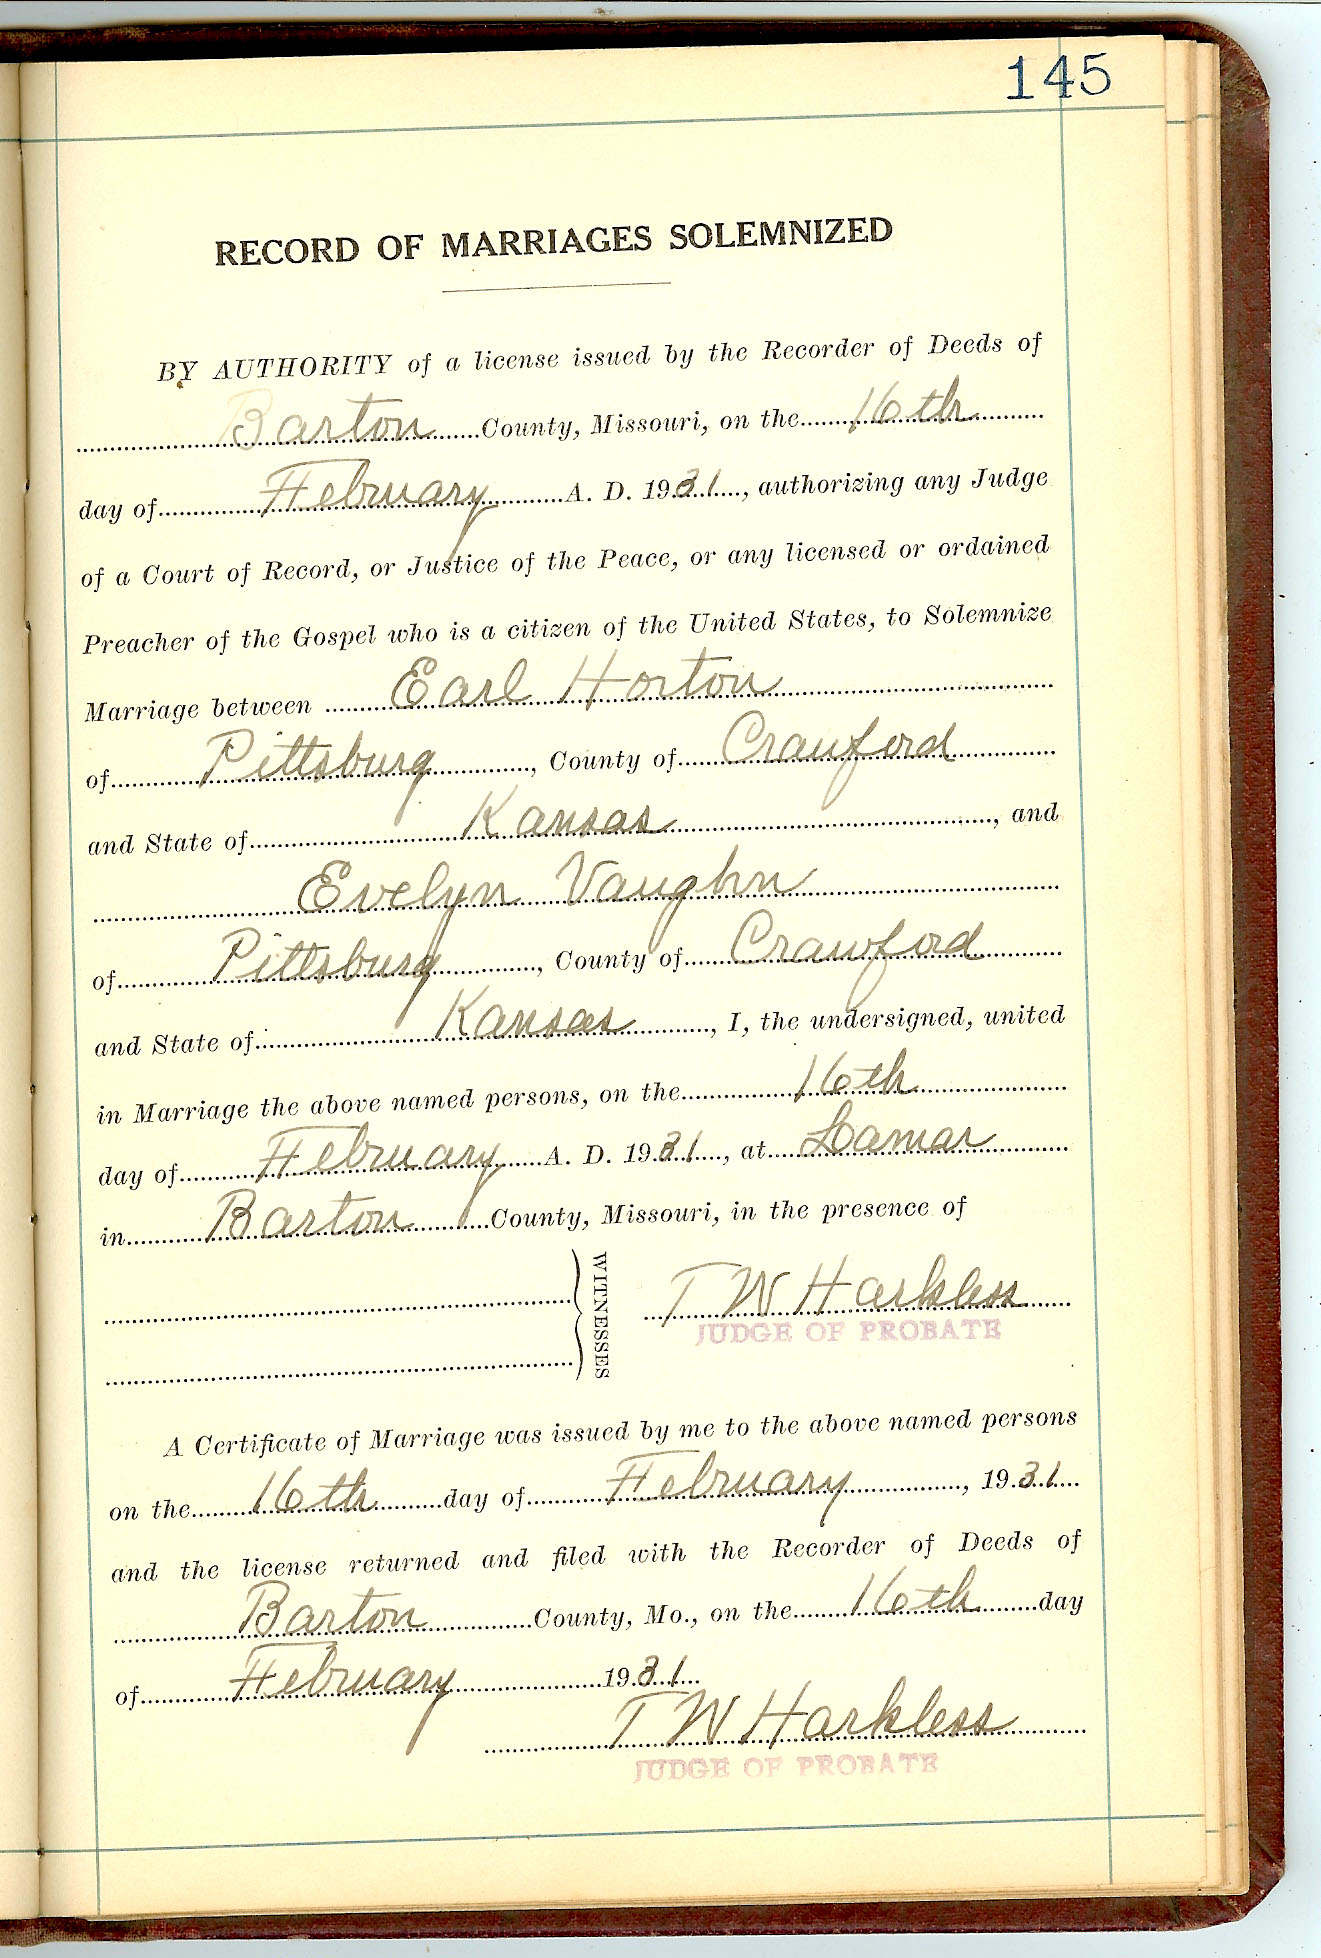 145
RECORD OF MARRIAGES SOLEMNIZED
BY AUTHORITY of a license issued by the Recorder of Deeds of
Barton County, Missouri, on the 16th
day of February A. D. 1931, authorizing any Judge
of a Court of Record, or Justice of the Peace, or any licensed or ordained
Preacher of the Gospel who is a citizen of the United States, to Solemnize
Marriage between Earl Horton
of Pittsburg, County of Crawford
and State of Kansas, and
Evelyn Vaughn
of Pittsburg, County of Crawford
and State of Kansas, I, the undersigned, united
in Marriage the above named persons, on the 16th
day of February A. D. 1931, at Lamar
in Barton County, Missouri, in the presence of
WITNESSES
T W Harkless
JUDGE OF PROBATE
A Certificate of Marriage was issued by me to the above named persons
on the 16th day of February, 1931
and the license returned and filed with the Recorder of Deeds of
Barton County, Mo., on the 16th day
of February 1931
T W Harkless
JUDGE OF PROBATE